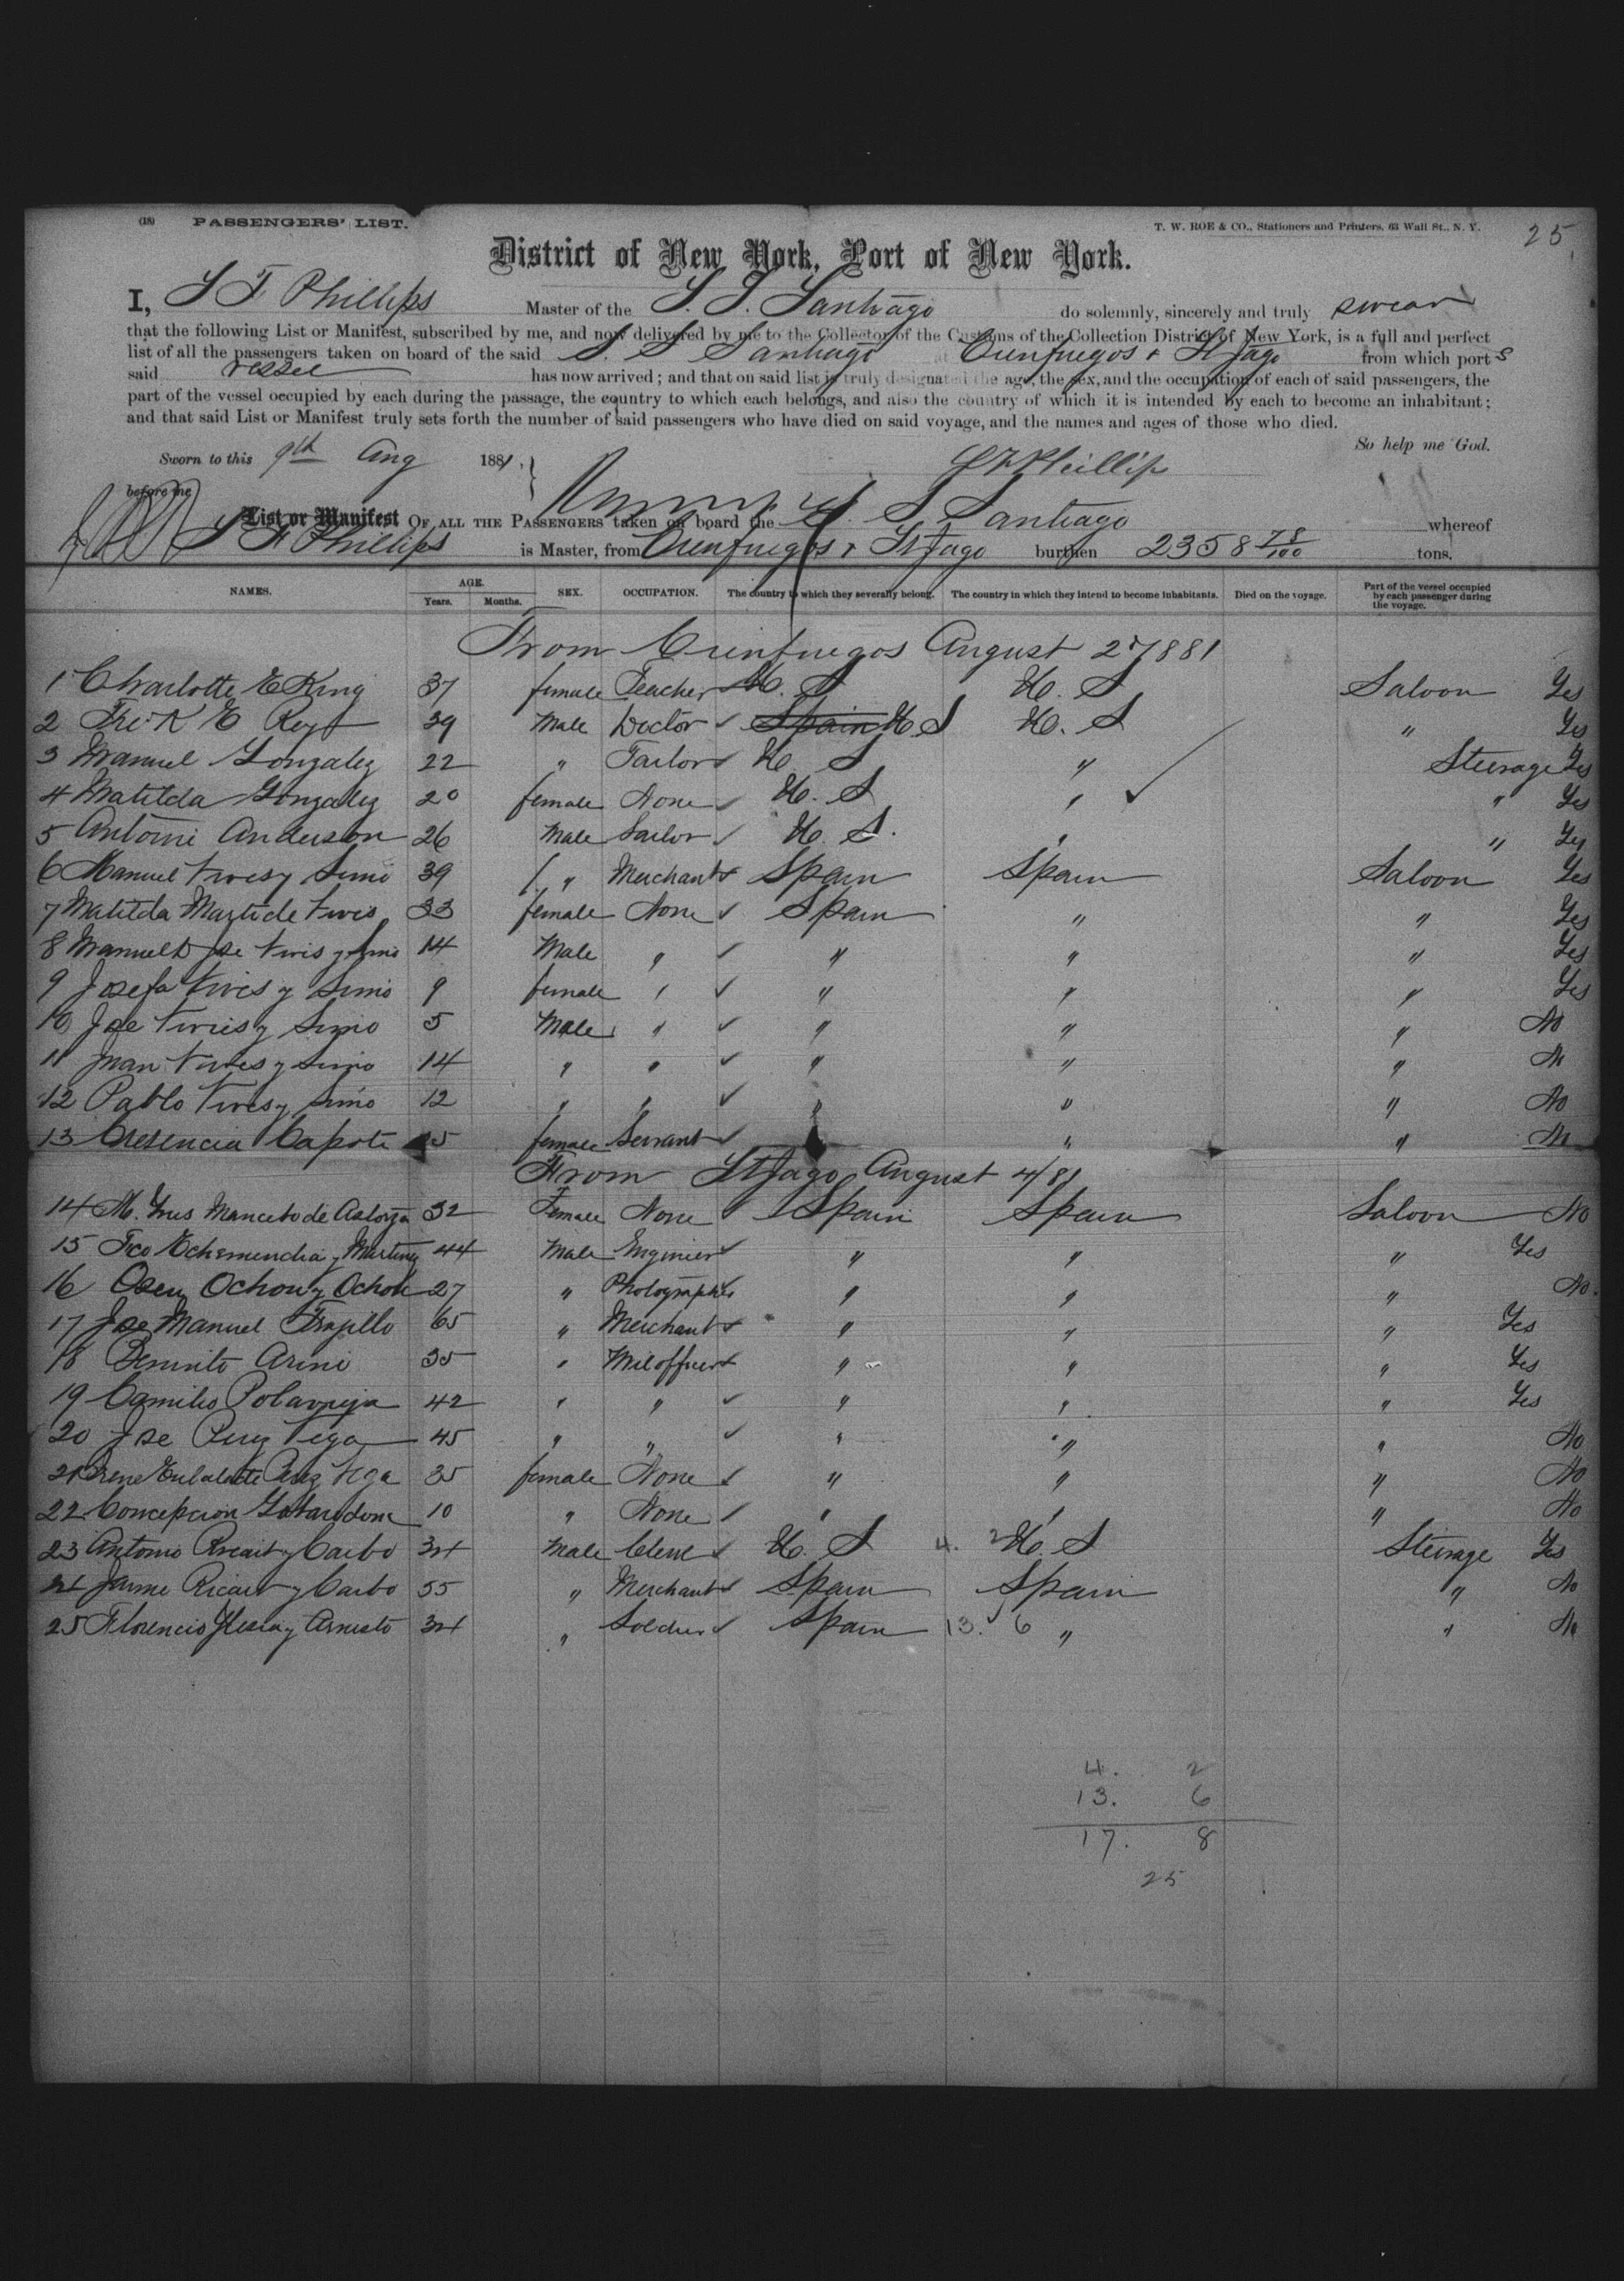 (18) PASSENGERS' LIST. T. W. ROE & CO., Stationers and Printers, 63 Wall St., N. Y. 25
District of New York, Port of New York.
I, S F Phillips Master of the S. S. Santiago do solemnly, sincerely and truly swear
that the following List or Manifest, subscribed by me, and now delivered by me to the Collector of the Customs of the Collection District of New York, is a full and perfect
list of all the passengers taken on board of the said S. S Santiago at Cienfuegos & St Jago from which port s
said vessel has now arrived; and that on said list is truly designated the age, the sex, and the occupation of each of said passengers, the
part of the vessel occupied by each during the passage, the country to which each belongs, and also the country of which it is intended by each to become an inhabitant;
and that said List or Manifest truly sets forth the number of said passengers who have died on said voyage, and the names and ages of those who died.
So help me God.
Sworn to this 9th Aug 1881, S F Phillips
before me
List or Manifest OF ALL THE PASSENGERS taken on board the S. S Santiago whereof
S F Phillips is Master, from Cienfuegos & St Jago burthen 2358 78/100 tons.
NAMES. AGE. Years. Months. SEX. OCCUPATION. The country to which they severally belong. The country in which they intend to become inhabitants. Died on the voyage. Part of the vessel occupied by each passenger during the voyage.
From Cienfuegos August 2d 1881
1 Charlotte E King 37 female Teacher U. S U. S Saloon Yes
2 E 39 Male Doctor ✓ Spain U. S U. S " Yes
3 Manuel Gonzalez 22 " Tailor ✓ U. S " Steerage Yes
4 Matilda Gonzalez 20 female None ✓ U. S " ✓ " Yes
5 Antoni Anderson 26 Male Sailor ✓ U. S. " " Yes
6 Manuel Vives y Simo 39 " Merchant ✓ Spain Spain Saloon Yes
7 Matilda Marti de Vives 33 female None ✓ Spain " " Yes
8 Jose Vives y Simo 14 Male " ✓ " " " Yes
9 Josefa Vives y Simo 9 female " ✓ " " " Yes
10 Jose Vives y Simo 5 Male " ✓ " " " No
11 Juan Vives y Simo 14 " " ✓ " " " No
12 Pablo Vives y Simo 12 " " ✓ " " " No
13 Cresencia Capote female Servant ✓ " " " No
From St Jago August 4/81
14 M. Ynes Mancebo de Astorga 32 Female None ✓ Spain Spain Saloon No
15 Fco Echemendia y Martinez 44 Male Enginier ✓ " " " Yes
16 Ochoa y Ochoa 27 " Photographer ✓ " " " No.
17 Jose Manuel Trujillo 65 " Merchant ✓ " " " Yes
18 Benito Arini 35 " Mil officer ✓ " " " Yes
19 Camilo Polavieja 42 " " ✓ " " " Yes
20 Jose Perez Vega 45 " " ✓ " " " No
21 Irene Perez Vega 35 female None ✓ " " " No
22 Concepcion 10 " None ✓ " " " No
23 Antonio Ricart y Carbo 34 Male Clerk ✓ U. S 4. 2 U. S Steerage Yes
24 Jaime Ricart y Carbo 55 " Merchant ✓ Spain Spain " No
25 Florencio Yglesia y Arnesto 34 " Soldier ✓ Spain 13. 6 " " No
4. 2
13. 6
17. 8
25